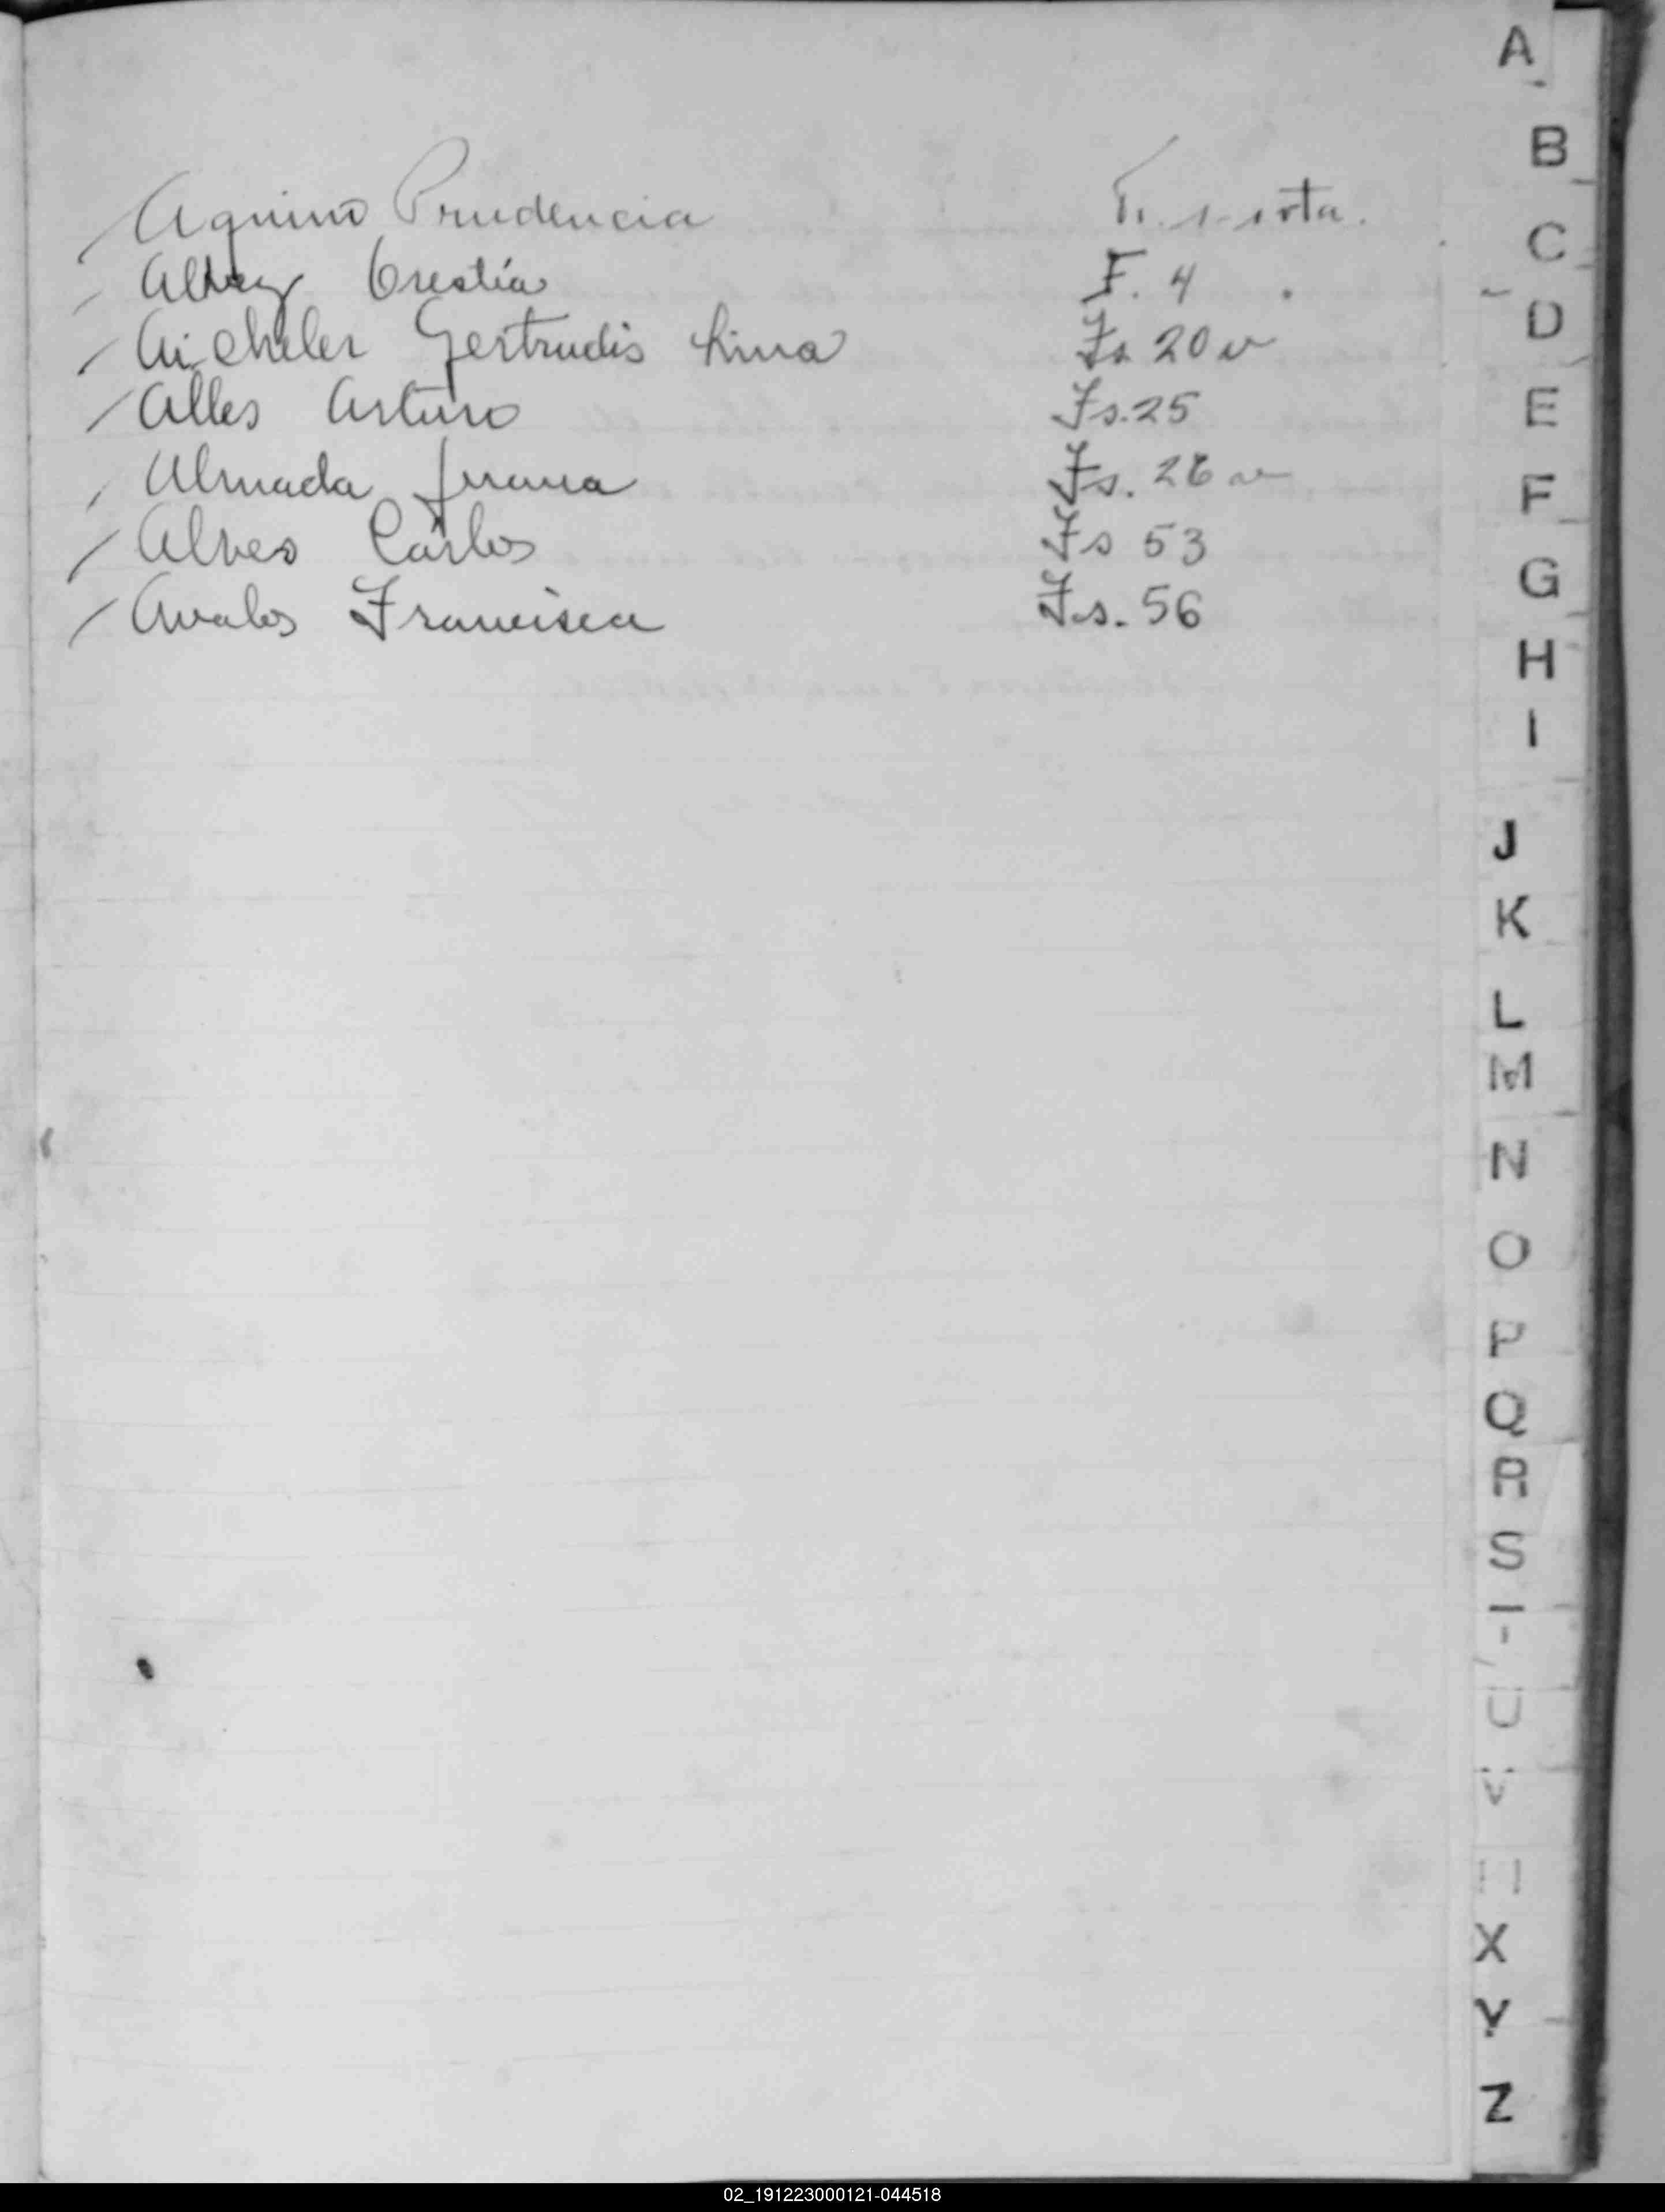 A
B
Aquino Prudencia F. 1 vta.
C
Altez Orestia F. 4
D
Aicheler Gertrudis Lina Fs 20 v
E
Alles Arturo Fs. 25
F
Almada Juana Fs. 26 v
Alves Carlos Fs 53
G
Avalos Francisca Fs. 56
H
I
J
K
L
M
N
O
P
Q
R
S
T
U
V
X
Y
Z
02_191223000121-044518